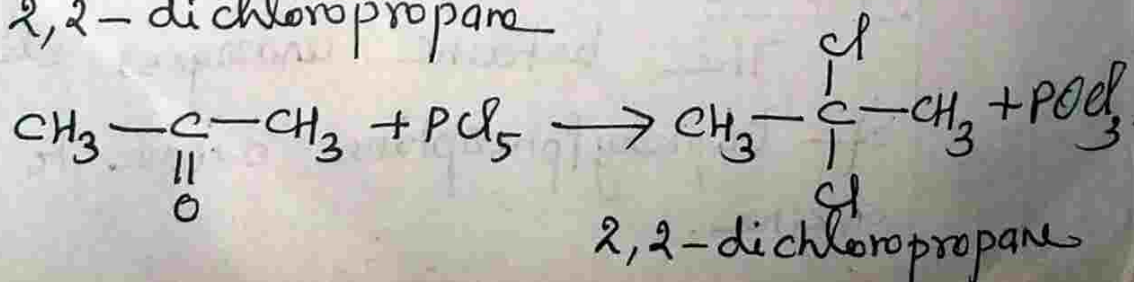 2,2-dichloropropane
Cl
CH3-C-CH3 + PCl5 → CH3-C-CH3 + POCl3
O Cl
2,2-dichloropropane